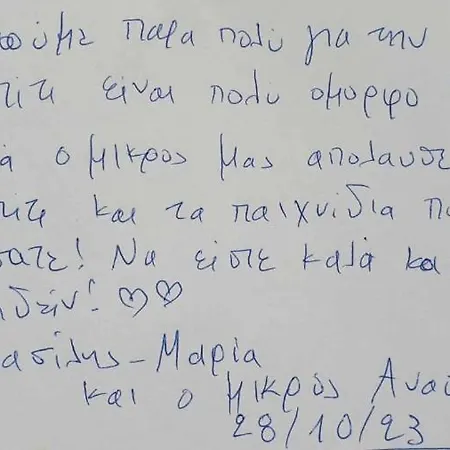 ούμε παρα πολύ για την
τιτι είναι πολύ ομορφο
ά ο μικρος μας απολαυσε
τιτι και τα παιχνίδια πο
σατε! Να είστε καλά κα
ιδείν! ♡♡
ασίλης - Μαρία
και ο μικρός Ανασ
28/10/23